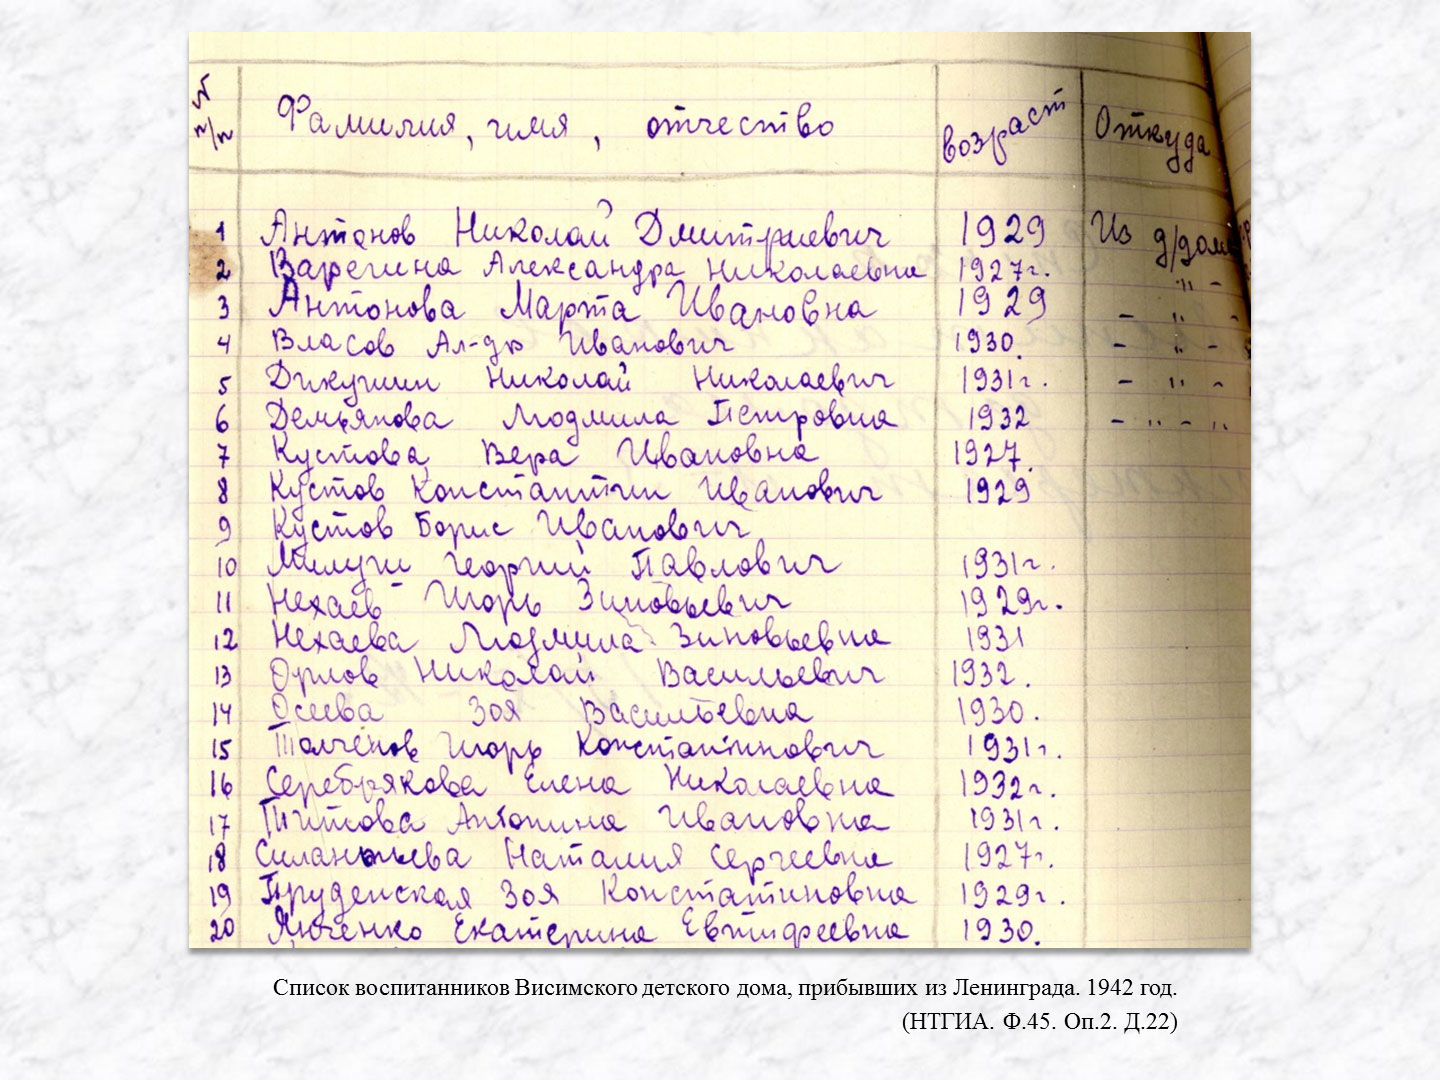 № п/п Фамилия, имя, отчество возраст Откуда
1 Антонов Николай Дмитриевич 1929 Из д/дома
2 Варегина Александра Николаевна 1927г. " -
3 Антонова Марта Ивановна 1929 - " -
4 Власов Ал-др Иванович 1930. - " -
5 Дикушин Николай Николаевич 1931г. - " -
6 Демьянова Людмила Петровна 1932 - " - "
7 Кустова Вера Ивановна 1927.
8 Кустов Константин Иванович 1929
9 Кустов Борис Иванович
10 Георгий Павлович 1931г.
11 Нехаев Игорь Зиновьевич 1929г.
12 Нехаева Людмила Зиновьевна 1931
13 Орлов Николай Васильевич 1932.
14 Зоя Васильевна 1930.
15 Толчёнов Игорь Константинович 1931г.
16 Серебрякова Елена Николаевна 1932г.
17 Титова Антонина Ивановна 1931г.
18 Наталия Сергеевна 1927г.
19 Пруденская Зоя Констатиновна 1929г.
20 Екатерина Евтифеевна 1930.
Список воспитанников Висимского детского дома, прибывших из Ленинграда. 1942 год.
(НТГИА. Ф.45. Оп.2. Д.22)